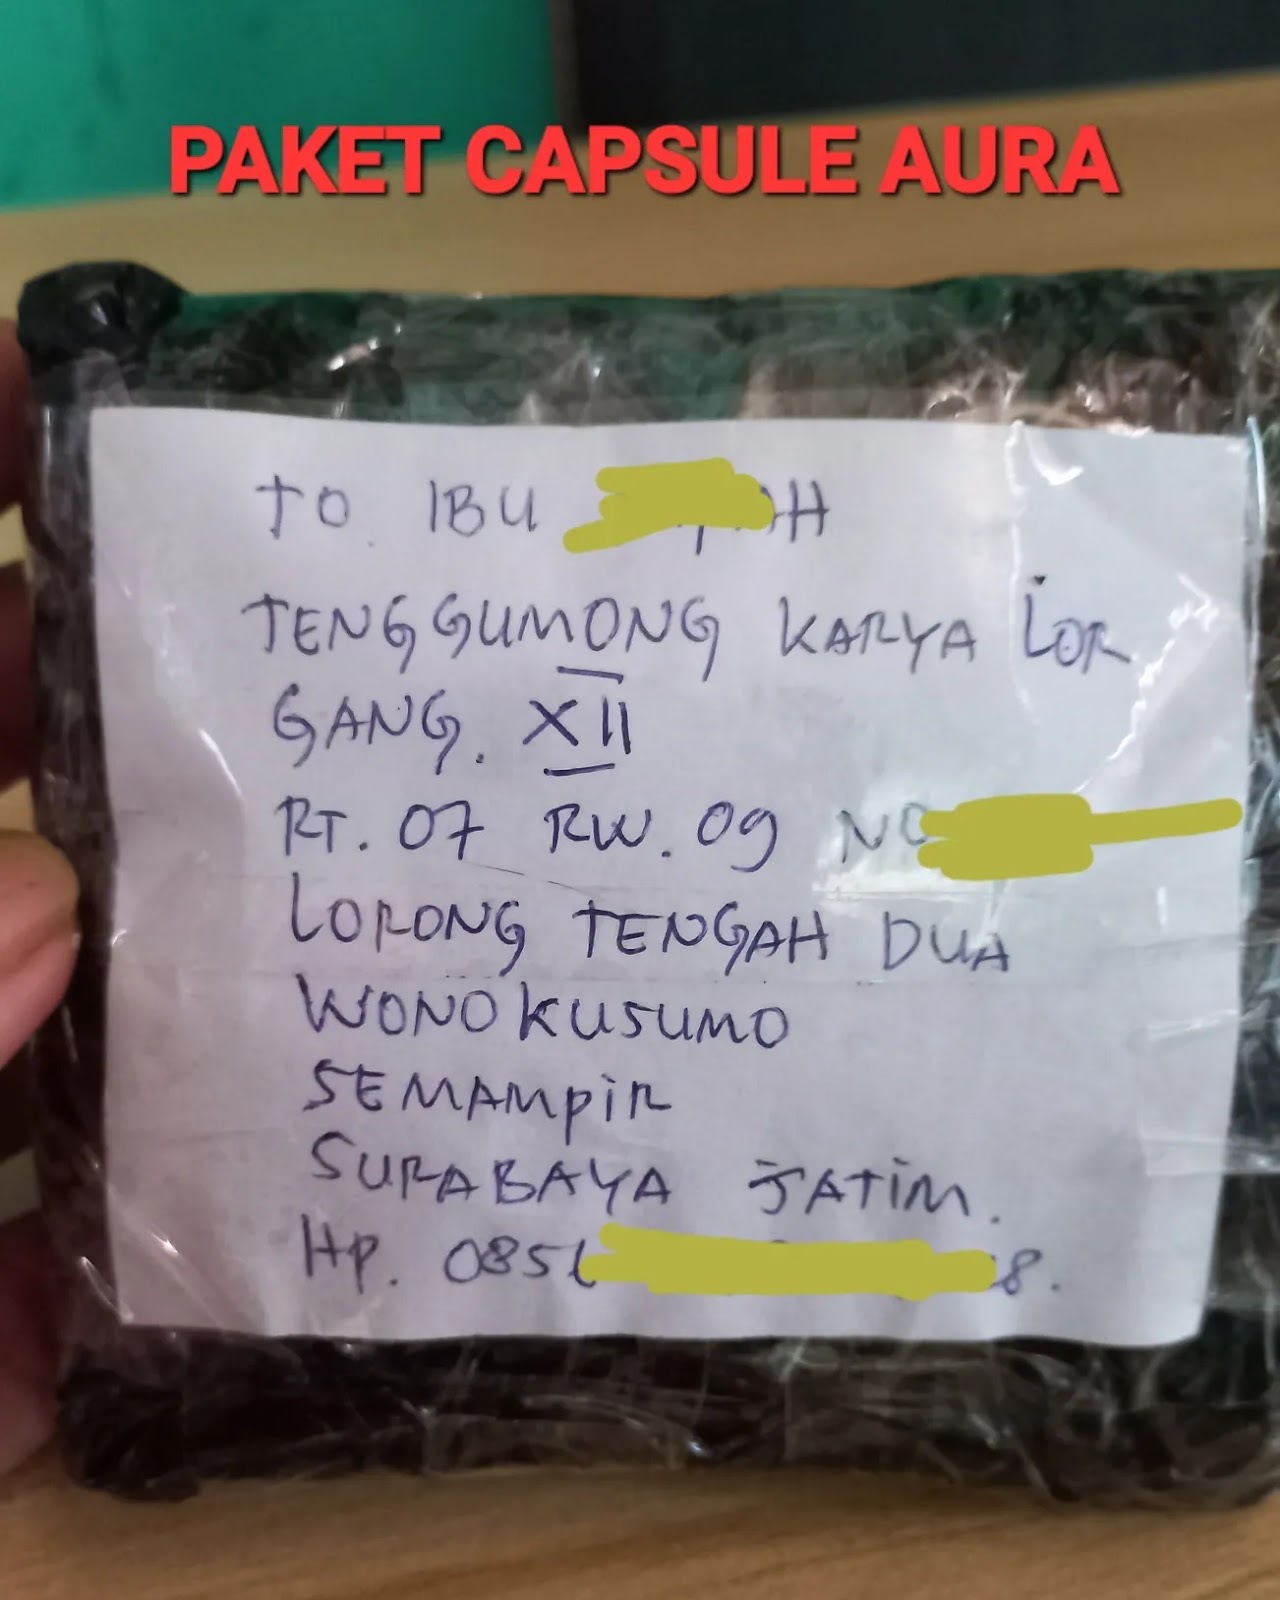 PAKET CAPSULE AURA
TO. IBU
TENGGUMONG KARYA LOR
GANG. XII
RT. 07 RW. 09 NO
LORONG TENGAH DUA
WONOKUSUMO
SEMAMPIR
SURABAYA JATIM.
HP. 085